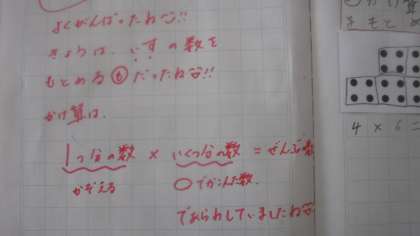 よくがんばったね!!
きょうは、いすの数を
もとめる も だったね!!
かけ算は、
1つ分の数 × いくつ分の数 = ぜんぶの数
かぞえる
○でかこんだ数。
であらわしていましたね
かけ算
をもと
4 × 6 =